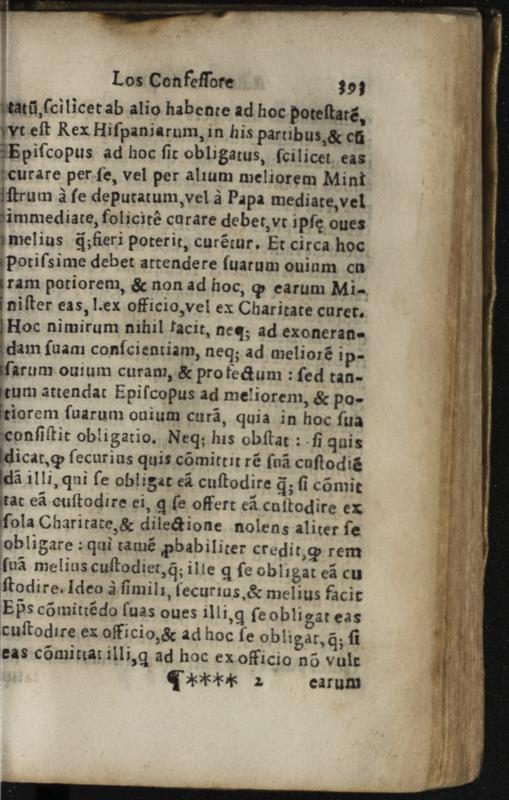 Los Confessore 393
tatũ, scilicet ab alio habente ad hoc potestatẽ,
vt est Rex Hispaniarum, in his partibus, & cũ
Episcopus ad hoc sit obligatus, scilicet eas
curare per se, vel per alium meliorem Mini
strum à se deputatum, vel à Papa mediate, vel
immediate, solicitê curare debet, vt ipsę oues
melius q̃; fieri poterit, curẽtur. Et circa hoc
potissime debet attendere suarum ouium cu
ram potiorem, & non ad hoc, ꝙ earum Mi-
nister eas, l. ex officio, vel ex Charitate curet.
Hoc nimirum nihil facit, neq; ad exoneran-
dam suam conscientiam, neq; ad meliorẽ ip-
sarum ouium curam, & profectum : sed tan-
tum attendat Episcopus ad meliorem, & po-
tiorem suarum ouium curã, quia in hoc sua
consistit obligatio. Neq; his obstat : si quis
dicat, ꝙ securius quis cõmittit rẽ suã custodiẽ
dã illi, qui se obligat eã custodire q̃; si cõmit
tat eã custodire ei, q se offert eã custodire ex
sola Charitate, & dilectione nolens aliter se
obligare : qui tamẽ ꝓbabiliter credit, ꝙ rem
suã melius custodiet, q̃; ille q se obligat eã cu
stodire. Ideo à simili, securius, & melius facit
Ep̃s cõmittẽdo suas oues illi, q se obligat eas
custodire ex officio, & ad hoc se obligat, q̃; si
eas cõmittat illi, q ad hoc ex officio nõ vult
¶**** 2 earum